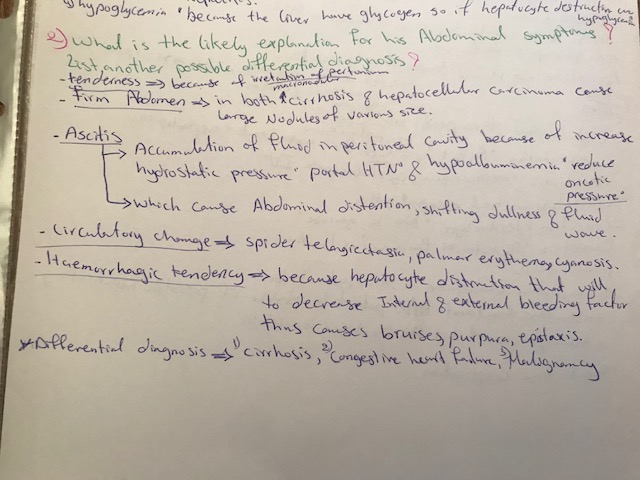 hypoglycemia " because the liver have glycogen so if hepatocyte destruction can
hypoglycemia
e) What is the likely explanation for his Abdominal symptoms ?
List another possible differential diagnosis ?
- tenderness => because of irretation of peritonium
macronodular
- Firm Abdomen => in both cirrhosis & hepatocellular carcinoma cause
Large Nodules of Various size.
- Ascitis
Accumulation of fluid in peritoneal cavity because of increase
hydrostatic pressure " portal HTN " & hypoalbuminemia " reduce
oncotic
pressure "
which cause Abdominal distention, shifting dullness & fluid
wave.
- Circulatory change => spider telagiectasia, palmar erythema, cyanosis.
- Haemorrhagic tendency => because hepatocyte distruction that will
to decrease Internal & external bleeding factor
thus causes bruises, purpura, epistaxis.
* Differential diagnosis => 1) Cirrhosis, 2) Congestive heart failure, 3) Malignancy